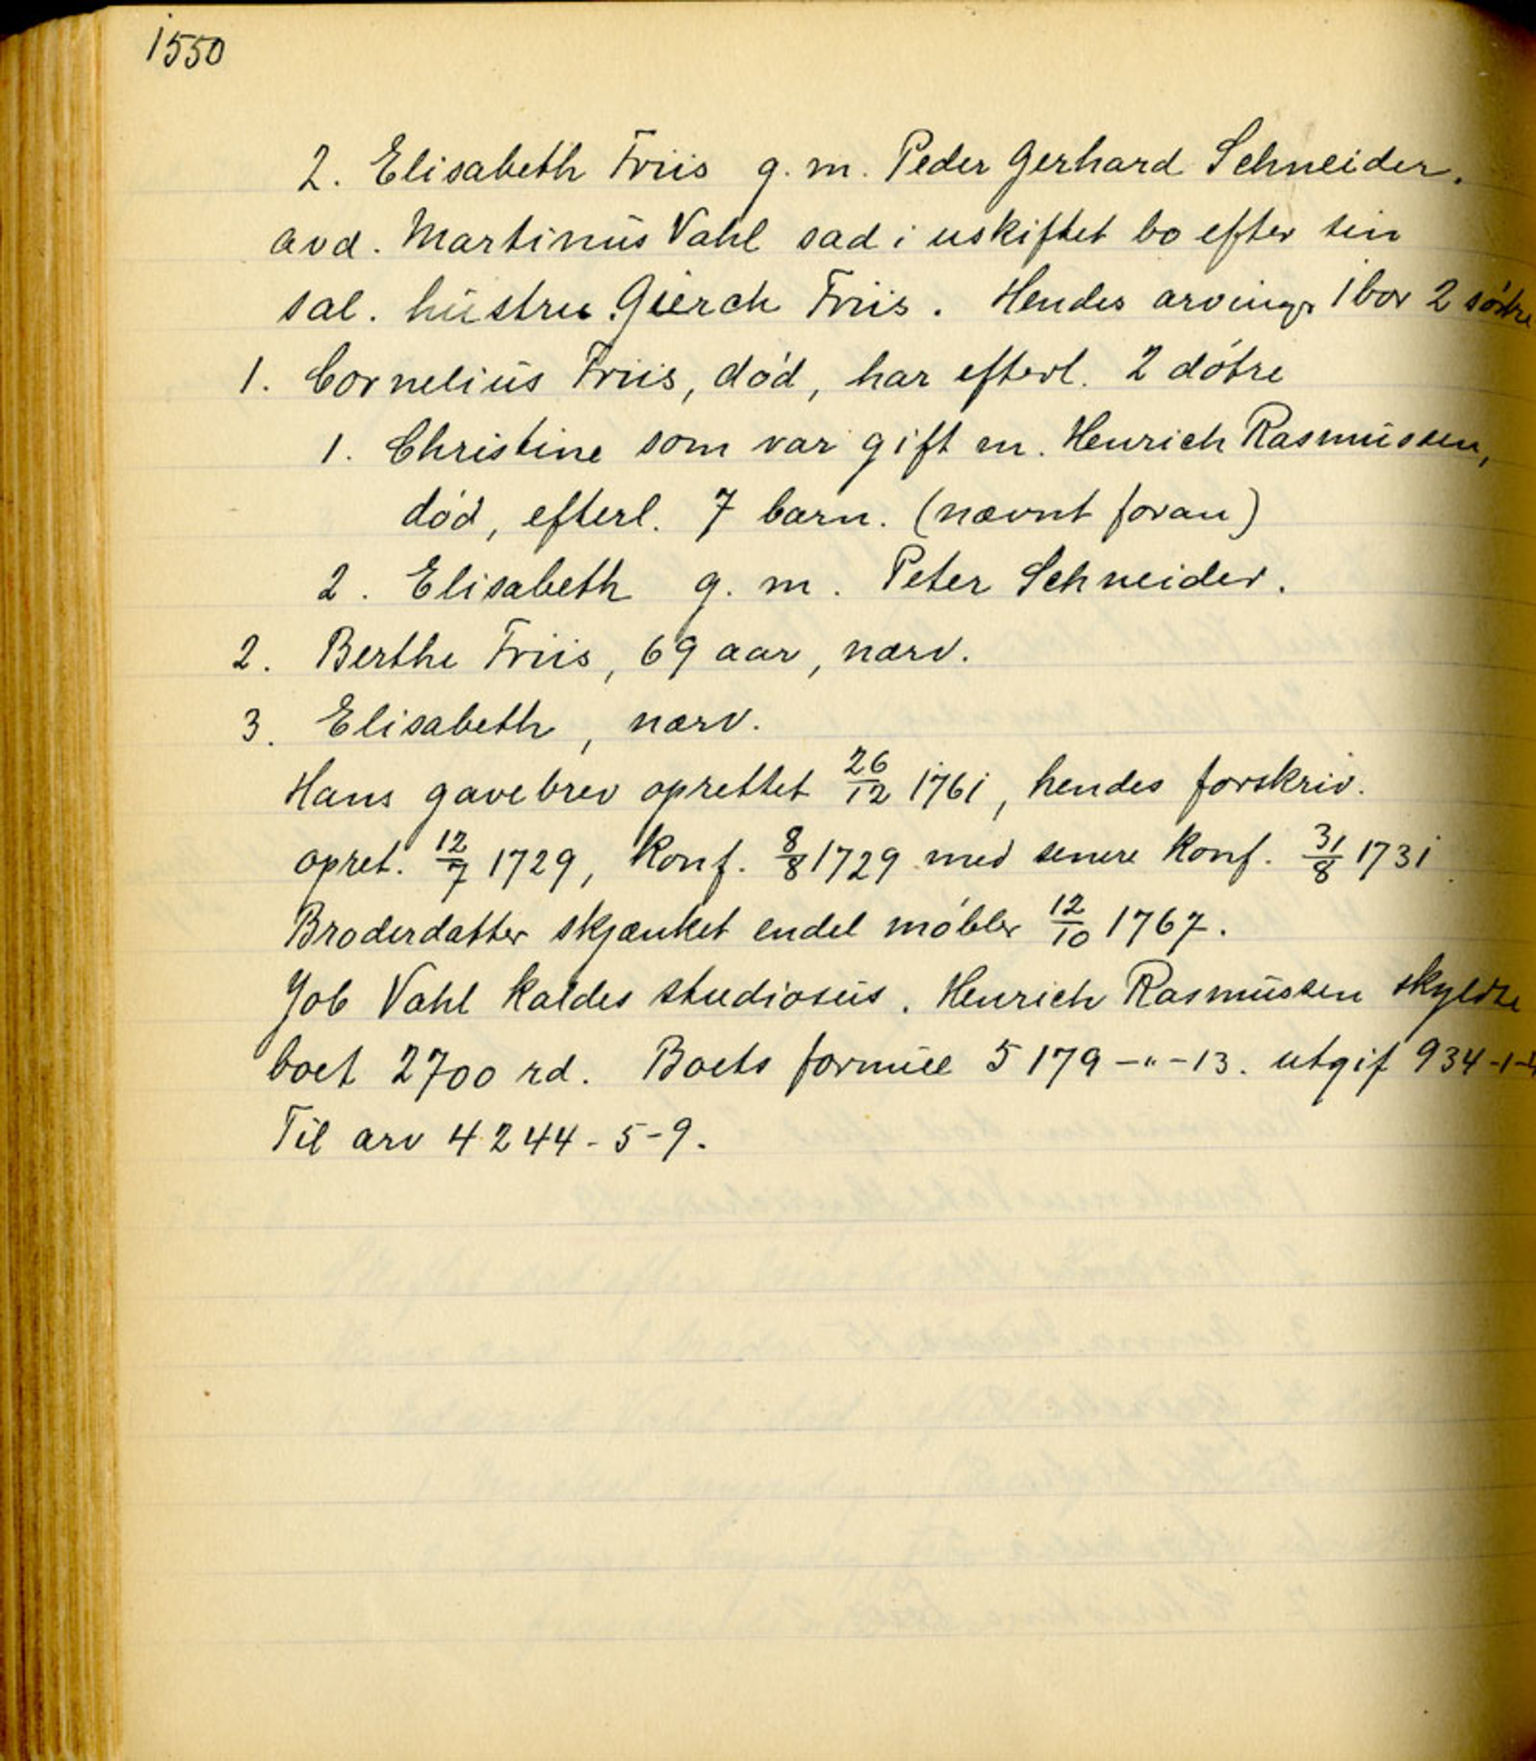 1550
2. Elisabeth Friis g. m. Peder Gerhard Schneider.
avd. Martinus Vahl sad i uskiftet bo efter sin
sal. hustru Gierch Friis. Hendes arvinger 1 bror 2 søstre
1. Cornelius Friis, død, har efterl. 2 døtre
1. Christine som var gift m. Henrich Rasmussen,
død, efterl. 7 barn. (nævnt foran)
2. Elisabeth g. m. Peter Schneider.
2. Berthe Friis, 69 aar, nærv.
3. Elisabeth, nærv.
Hans gavebrev oprettet 26/12 1761, hendes forskriv.
opret. 12/7 1729, konf. 8/8 1729 med senere konf. 31/8 1731
Broderdatter skjænket endel møbler 12/10 1767.
Job Vahl kaldes studiosus. Henrich Rasmussen skyldte
boet 2700 rd. Boets formue 5179-"-13. utgif 934-1-4
Til arv 4244-5-9.